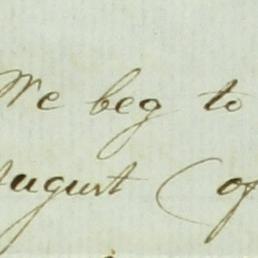 We beg to
August (of